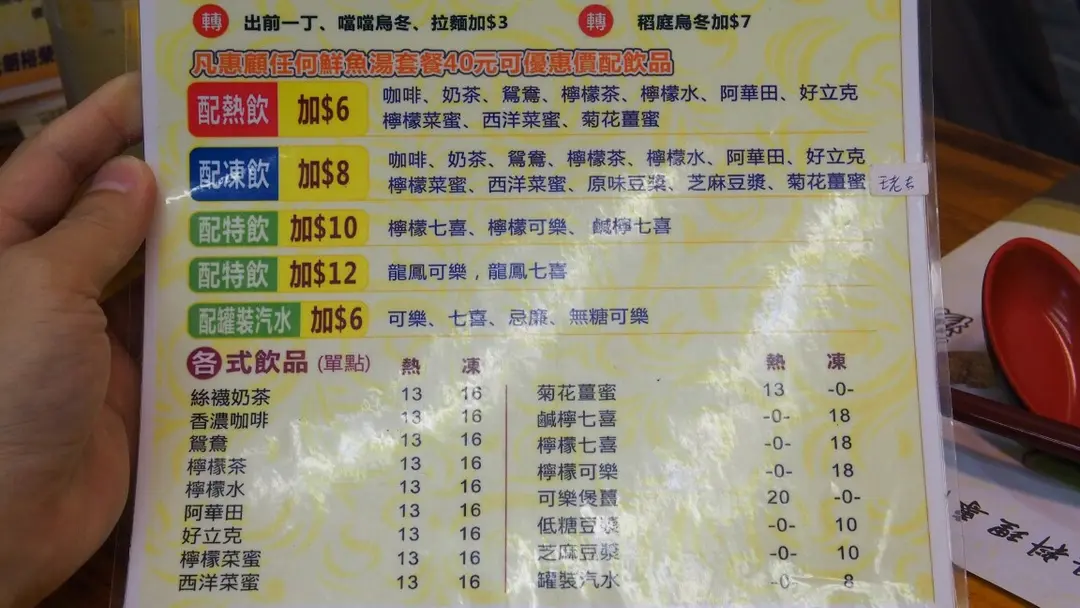 轉 出前一丁、噹噹烏冬、拉麵加$3 轉 稻庭烏冬加$7
凡惠顧任何鮮魚湯套餐40元可優惠價配飲品
配熱飲 加$6 咖啡、奶茶、鴛鴦、檸檬茶、檸檬水、阿華田、好立克
檸檬菜蜜、西洋菜蜜、菊花薑蜜
配凍飲 加$8 咖啡、奶茶、鴛鴦、檸檬茶、檸檬水、阿華田、好立克
檸檬菜蜜、西洋菜蜜、原味豆漿、芝麻豆漿、菊花薑蜜
配特飲 加$10 檸檬七喜、檸檬可樂、鹹檸七喜
配特飲 加$12 龍鳳可樂，龍鳳七喜
配罐裝汽水 加$6 可樂、七喜、忌廉、無糖可樂
各式飲品 (單點) 熱 凍 熱 凍
絲襪奶茶 13 16 菊花薑蜜 13 -0-
香濃咖啡 13 16 鹹檸七喜 -0- 18
鴛鴦 13 16 檸檬七喜 -0- 18
檸檬茶 13 16 檸檬可樂 -0- 18
檸檬水 13 16 可樂煲薑 20 -0-
阿華田 13 16 低糖豆漿 -0- 10
好立克 13 16 芝麻豆漿 -0- 10
檸檬菜蜜 13 16 罐裝汽水 -0 8
西洋菜蜜 13 16
料理